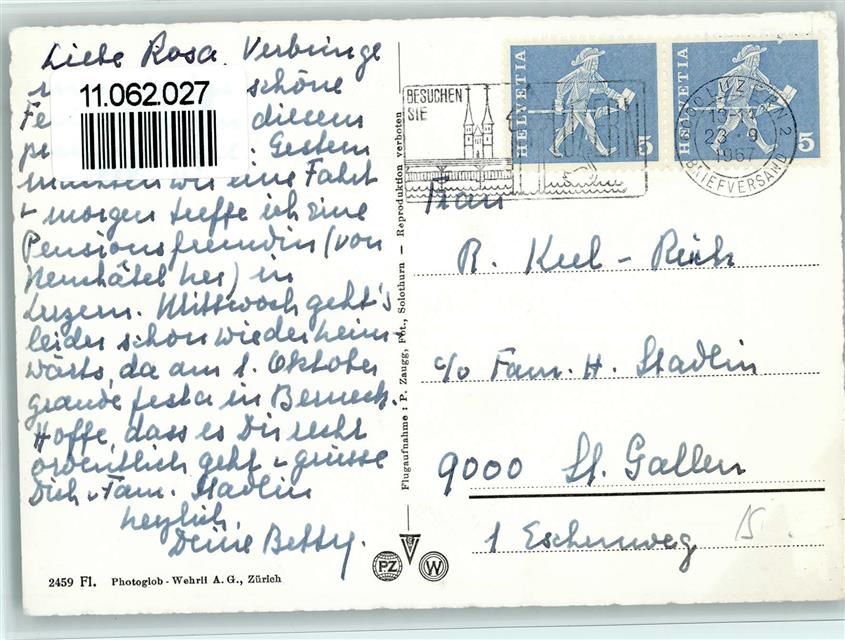 Liebe Rosa. Verbringe
schöne
Fe diesem
Gestern
machten wir eine Fahrt
+ morgen treffe ich eine
Pensionsfreundin (von
Neuchâtel her) in
Luzern. Mittwoch geht's
leider schon wieder heim-
wärts, da am 1. Oktober
grande festa in Berneck.
Hoffe, dass es Dir recht
ordentlich geht + grüsse
Dich + Fam. Stadlin
herzlich,
Deine Betty.
11.062.027
2459 Fl. Photoglob - Wehrli A. G., Zürich
Flugaufnahme: P. Zaugg, Fot., Solothurn — Reproduktion verboten
PZ
W
BESUCHEN
SIE
LUZERN
HELVETIA
5
HELVETIA
5
LUZERN 2
13-14
23-9
1967
BRIEFVERSAND
Frau
R. Kuel - Rüch
c/o Fam. H. Stadlin
9000 St. Gallen
1 Eschenweg 15.